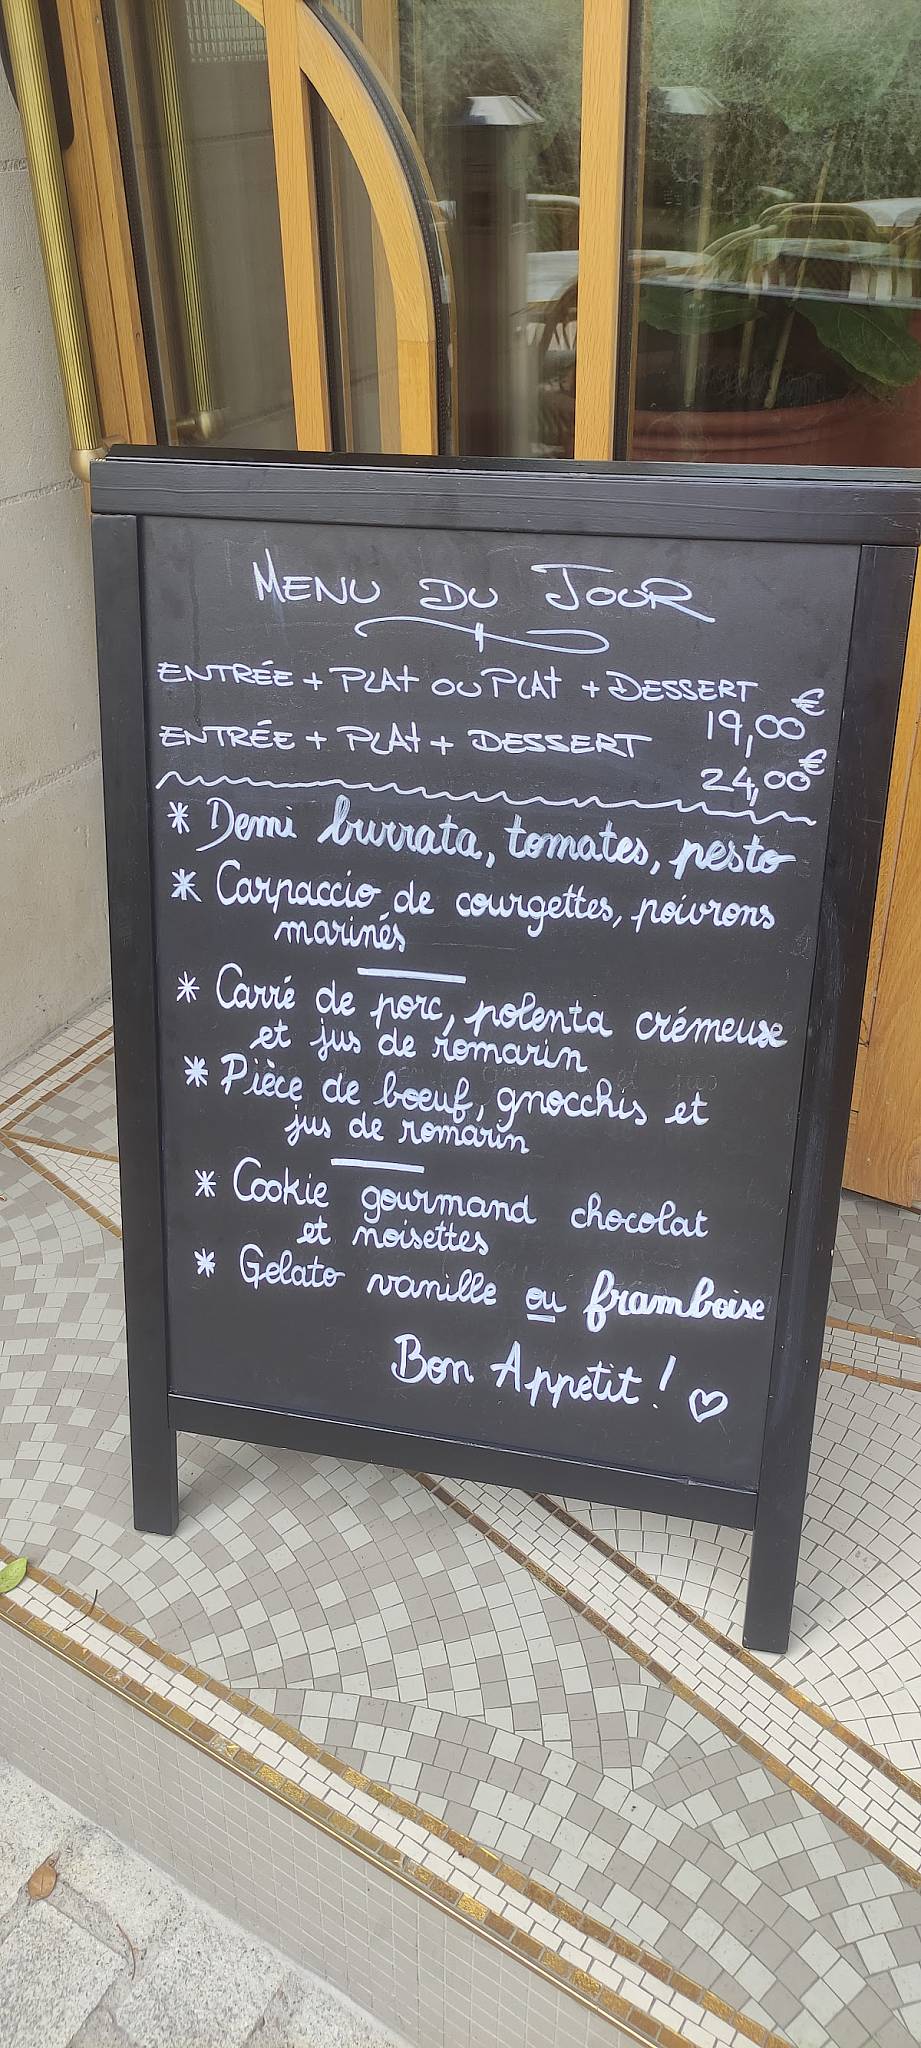 MENU DU JOUR
ENTRÉE + PLAT OU PLAT + DESSERT
19,00€
ENTRÉE + PLAT + DESSERT
24,00€
* Demi burrata, tomates, pesto
* Carpaccio de courgettes, poivrons
marinés
* Carré de porc, polenta crémeuse
et jus de romarin
* Pièce de boeuf, gnocchis et
jus de romarin
* Cookie gourmand chocolat
et noisettes
* Gelato vanille ou framboise
Bon Appétit ! ♡